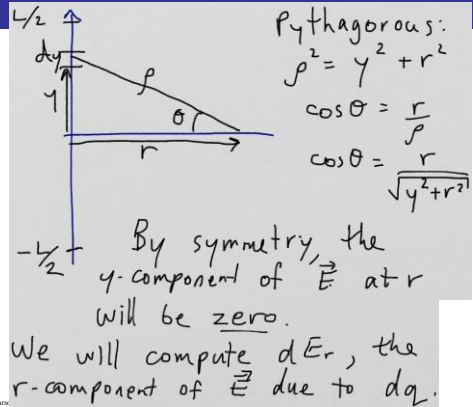 L/2
Pythagorous:
dy
ρ
ρ² = y² + r²
y
θ
cos θ = r/ρ
r
cos θ = r/√(y²+r²)
-L/2
By symmetry, the
y-component of E⃗ at r
will be zero.
We will compute dEr, the
r-component of E⃗ due to dq.